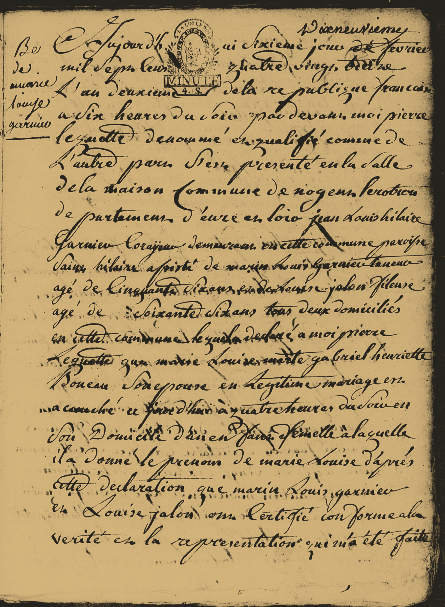 Dixneuvieme
Be
de
marie
louise
garnier
Aujourdh ui Sixieme jour de fevrier
MINUTE
mil Sept Cens quatre vingt
L'an deuxieme de la republique francaise
a Six heures du Soir pardevant moi pierre
lequette denommé en qualifié comme de
L'autre part S'est presenté en la Salle
de la maison Commune de nogent lerotrou
departement d'eure en loir jean Louis hilaire
Garnier demeurant en cette commune paroisse
Saint hilaire assisté de marin Louis garnier
agé de Cinquante Six ans en de Louise jalon fileuse
agé de Soixante Six ans tous deux domiciliés
en cette commune lequel a declaré a moi pierre
Lequette que marie Louise gabriel henriette
Poueau Son epouse en Legitime mariage est
acouché ce jourd'hui a quatre heures du Soir en
Son Domicile d'un enfant femelle a laquelle
il a donné le prenom de marie Louise d'aprés
cette declaration que marin Louis garnier
en Louise jalon ont Certifié conforme a la
verité en la representation qui m'a été faite